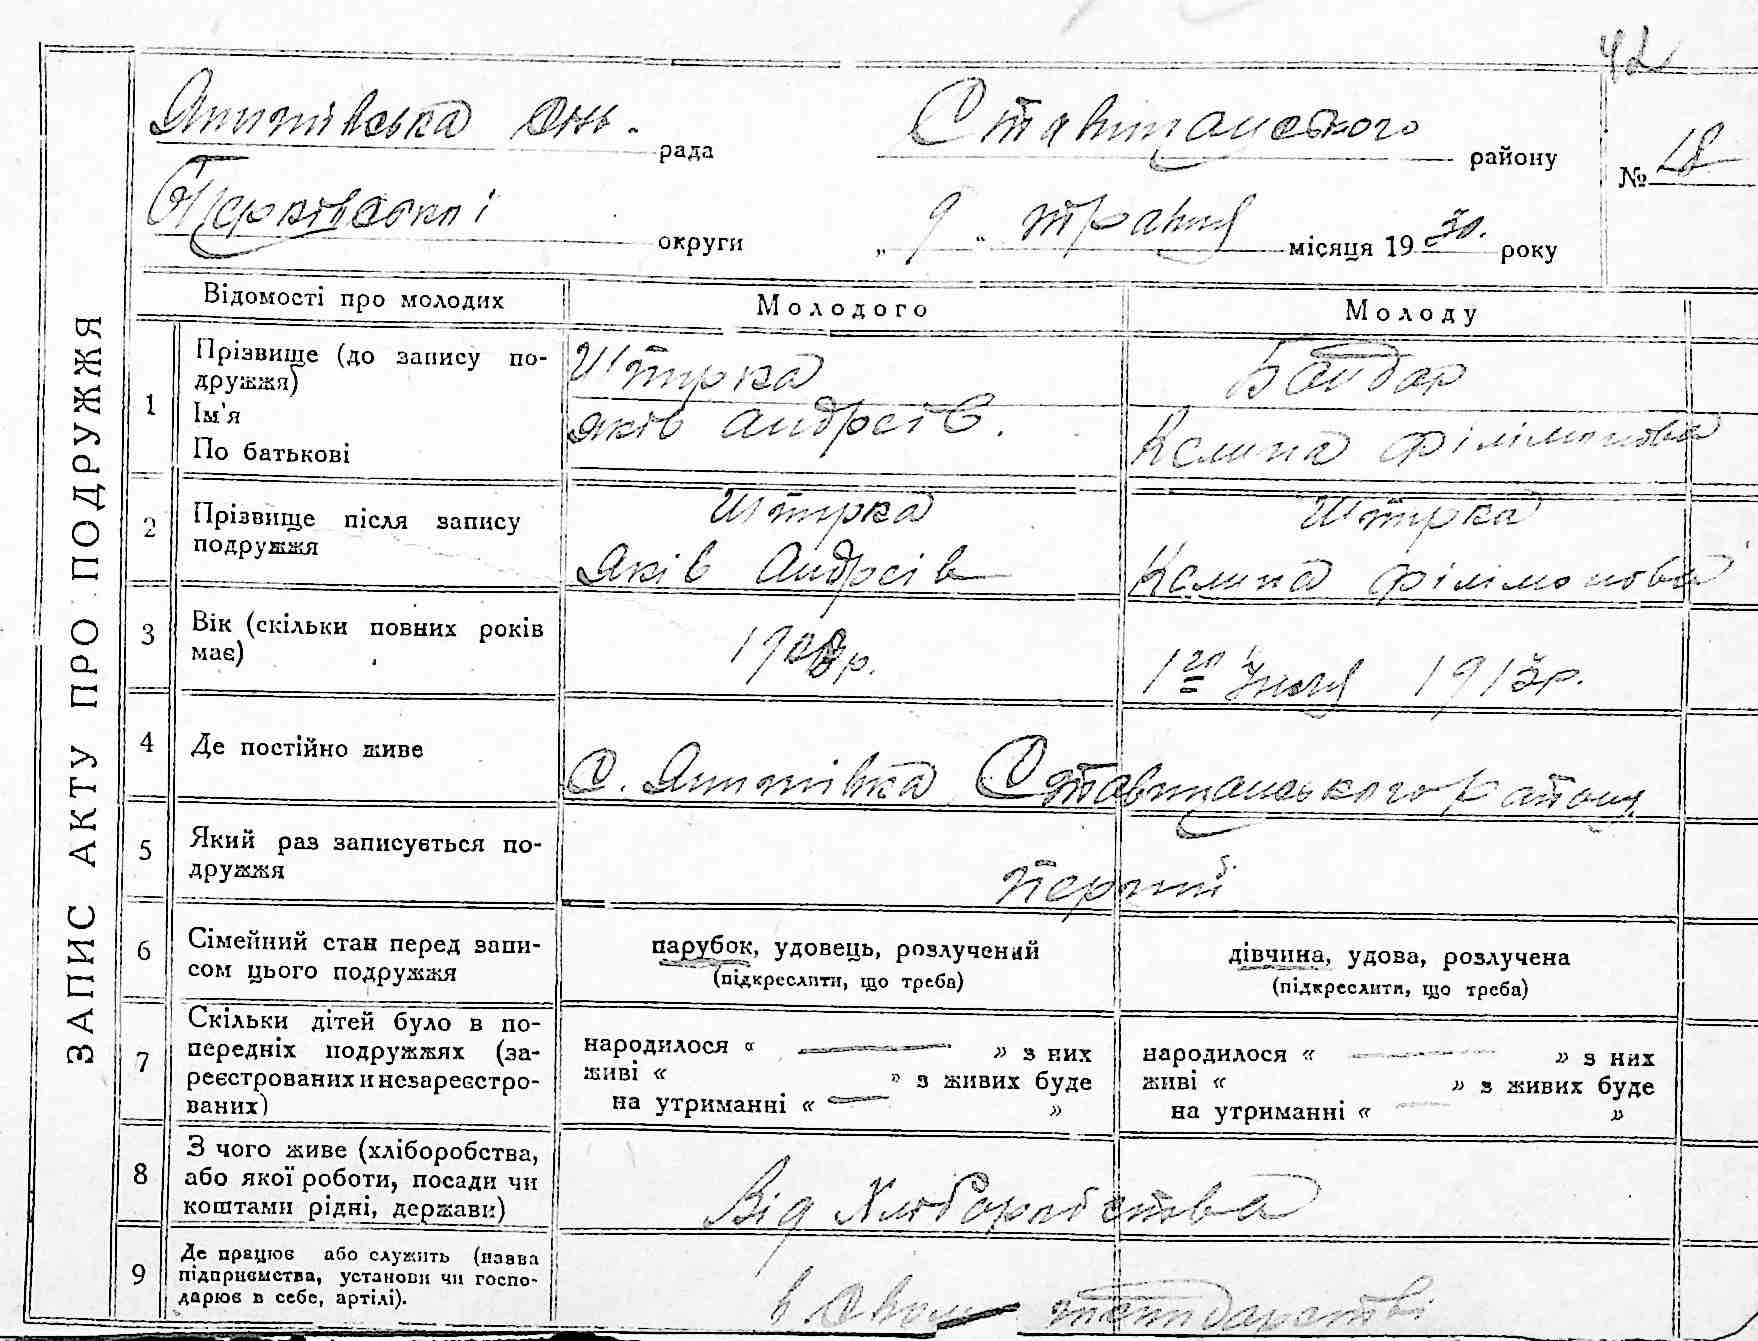 42
ЗАПИС АКТУ ПРО ПОДРУЖЖЯ
рада
Ставищанського району
№ 18
округи
„ 9 “ травня місяця 19 30. року
Відомості про молодих
Молодого
Молоду
1
Прізвище (до запису по-
дружжя)
Ім'я
По батькові
Штирка
Яків Андреїв.
Бондар
Келина Філімонова
2
Прізвище після запису
подружжя
Штирка
Яків Андреїв
Штирка
Келина Філімонова
3
Вік (скільки повних років
має)
р.
1го Июля 1913р.
4
Де постійно живе
С. Ставищанського района
5
Який раз записується по-
дружжя
перший
6
Сімейний стан перед запи-
сом цього подружжя
парубок, удовець, розлучений
(підкреслити, що треба)
дівчина, удова, розлучена
(підкреслити, що треба)
7
Скільки дітей було в по-
передніх подружжях (за-
реєстрованих и незареєстро-
ваних)
народилося « — » з них
живі « » з живих буде
на утриманні « — »
народилося « — » з них
живі « » з живих буде
на утриманні « — »
8
З чого живе (хліборобства,
або якої роботи, посади чи
коштами рідні, держави)
Від Хліборобства
9
Де працює або служить (назва
підприємства, установи чи госпо-
дарює в себе, артілі).
в свом господарстві